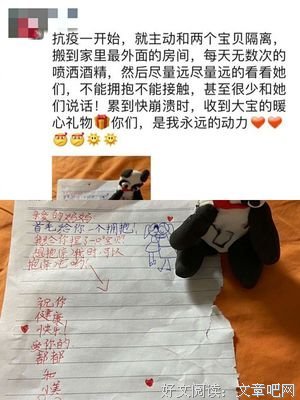 抗疫一开始，就主动和两个宝贝隔离，
搬到家里最外面的房间，每天无数次的
喷洒酒精，然后尽量远尽量远的看看她
们，不能拥抱不能接触，甚至很少和她
们说话！累到快崩溃时，收到大宝的暖
心礼物🎁你们，是我永远的动力❤️❤️
亲爱的妈妈
首先给你一个拥抱，
祝你
健康
快乐！
爱你的
都都
和
小美
好文阅读：文章吧网